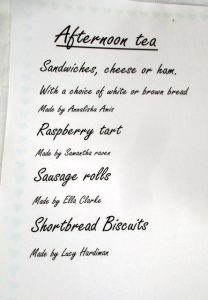 Afternoon tea
Sandwiches, cheese or ham.
With a choice of white or brown bread
Made by Annalisha Amis
Raspberry tart
Made by Samantha raven
Sausage rolls
Made by Ella Clarke
Shortbread Biscuits
Made by Lucy Hardiman